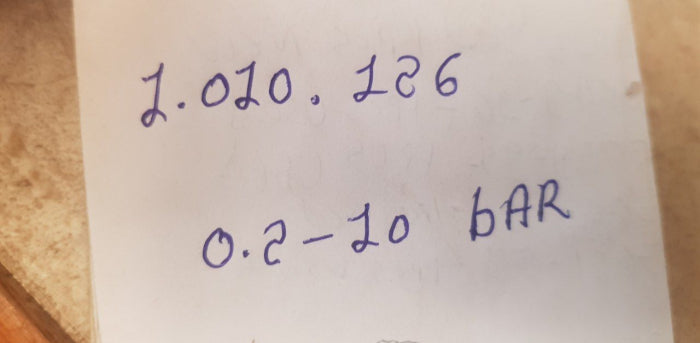 1.010.126
0.2-10 bAR